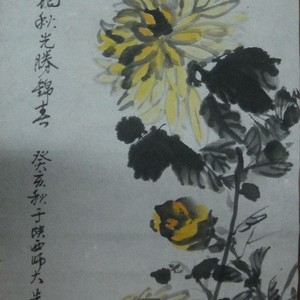 秋光勝錦春
癸亥秋于陕西師大